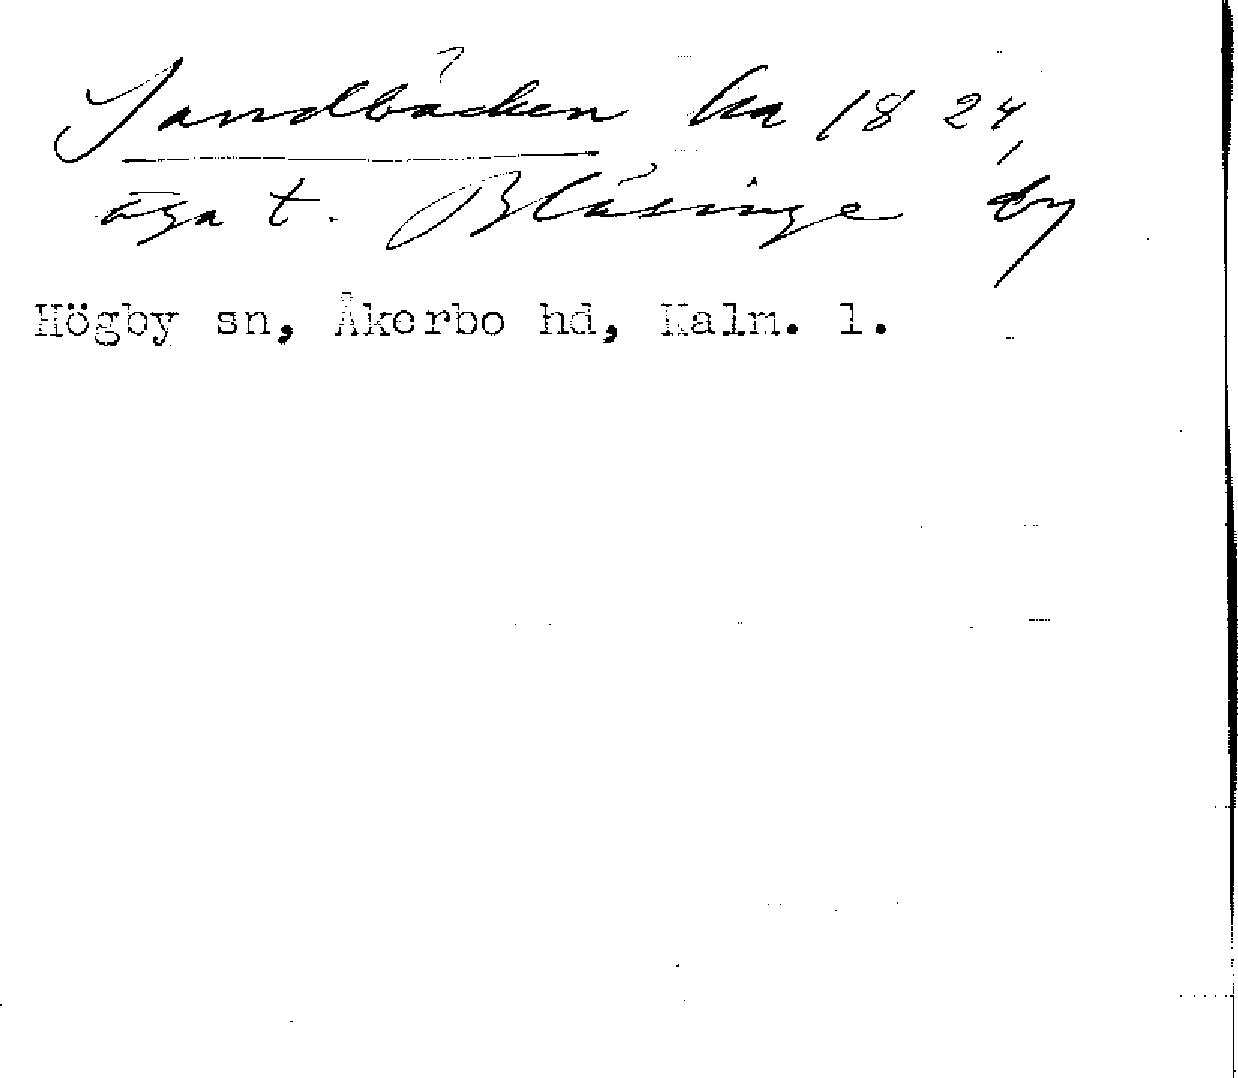 Sandbäcken ka 1824,
äga t. Bläsinge by
Högby sn, Åkerbo hd, Kalm. l.